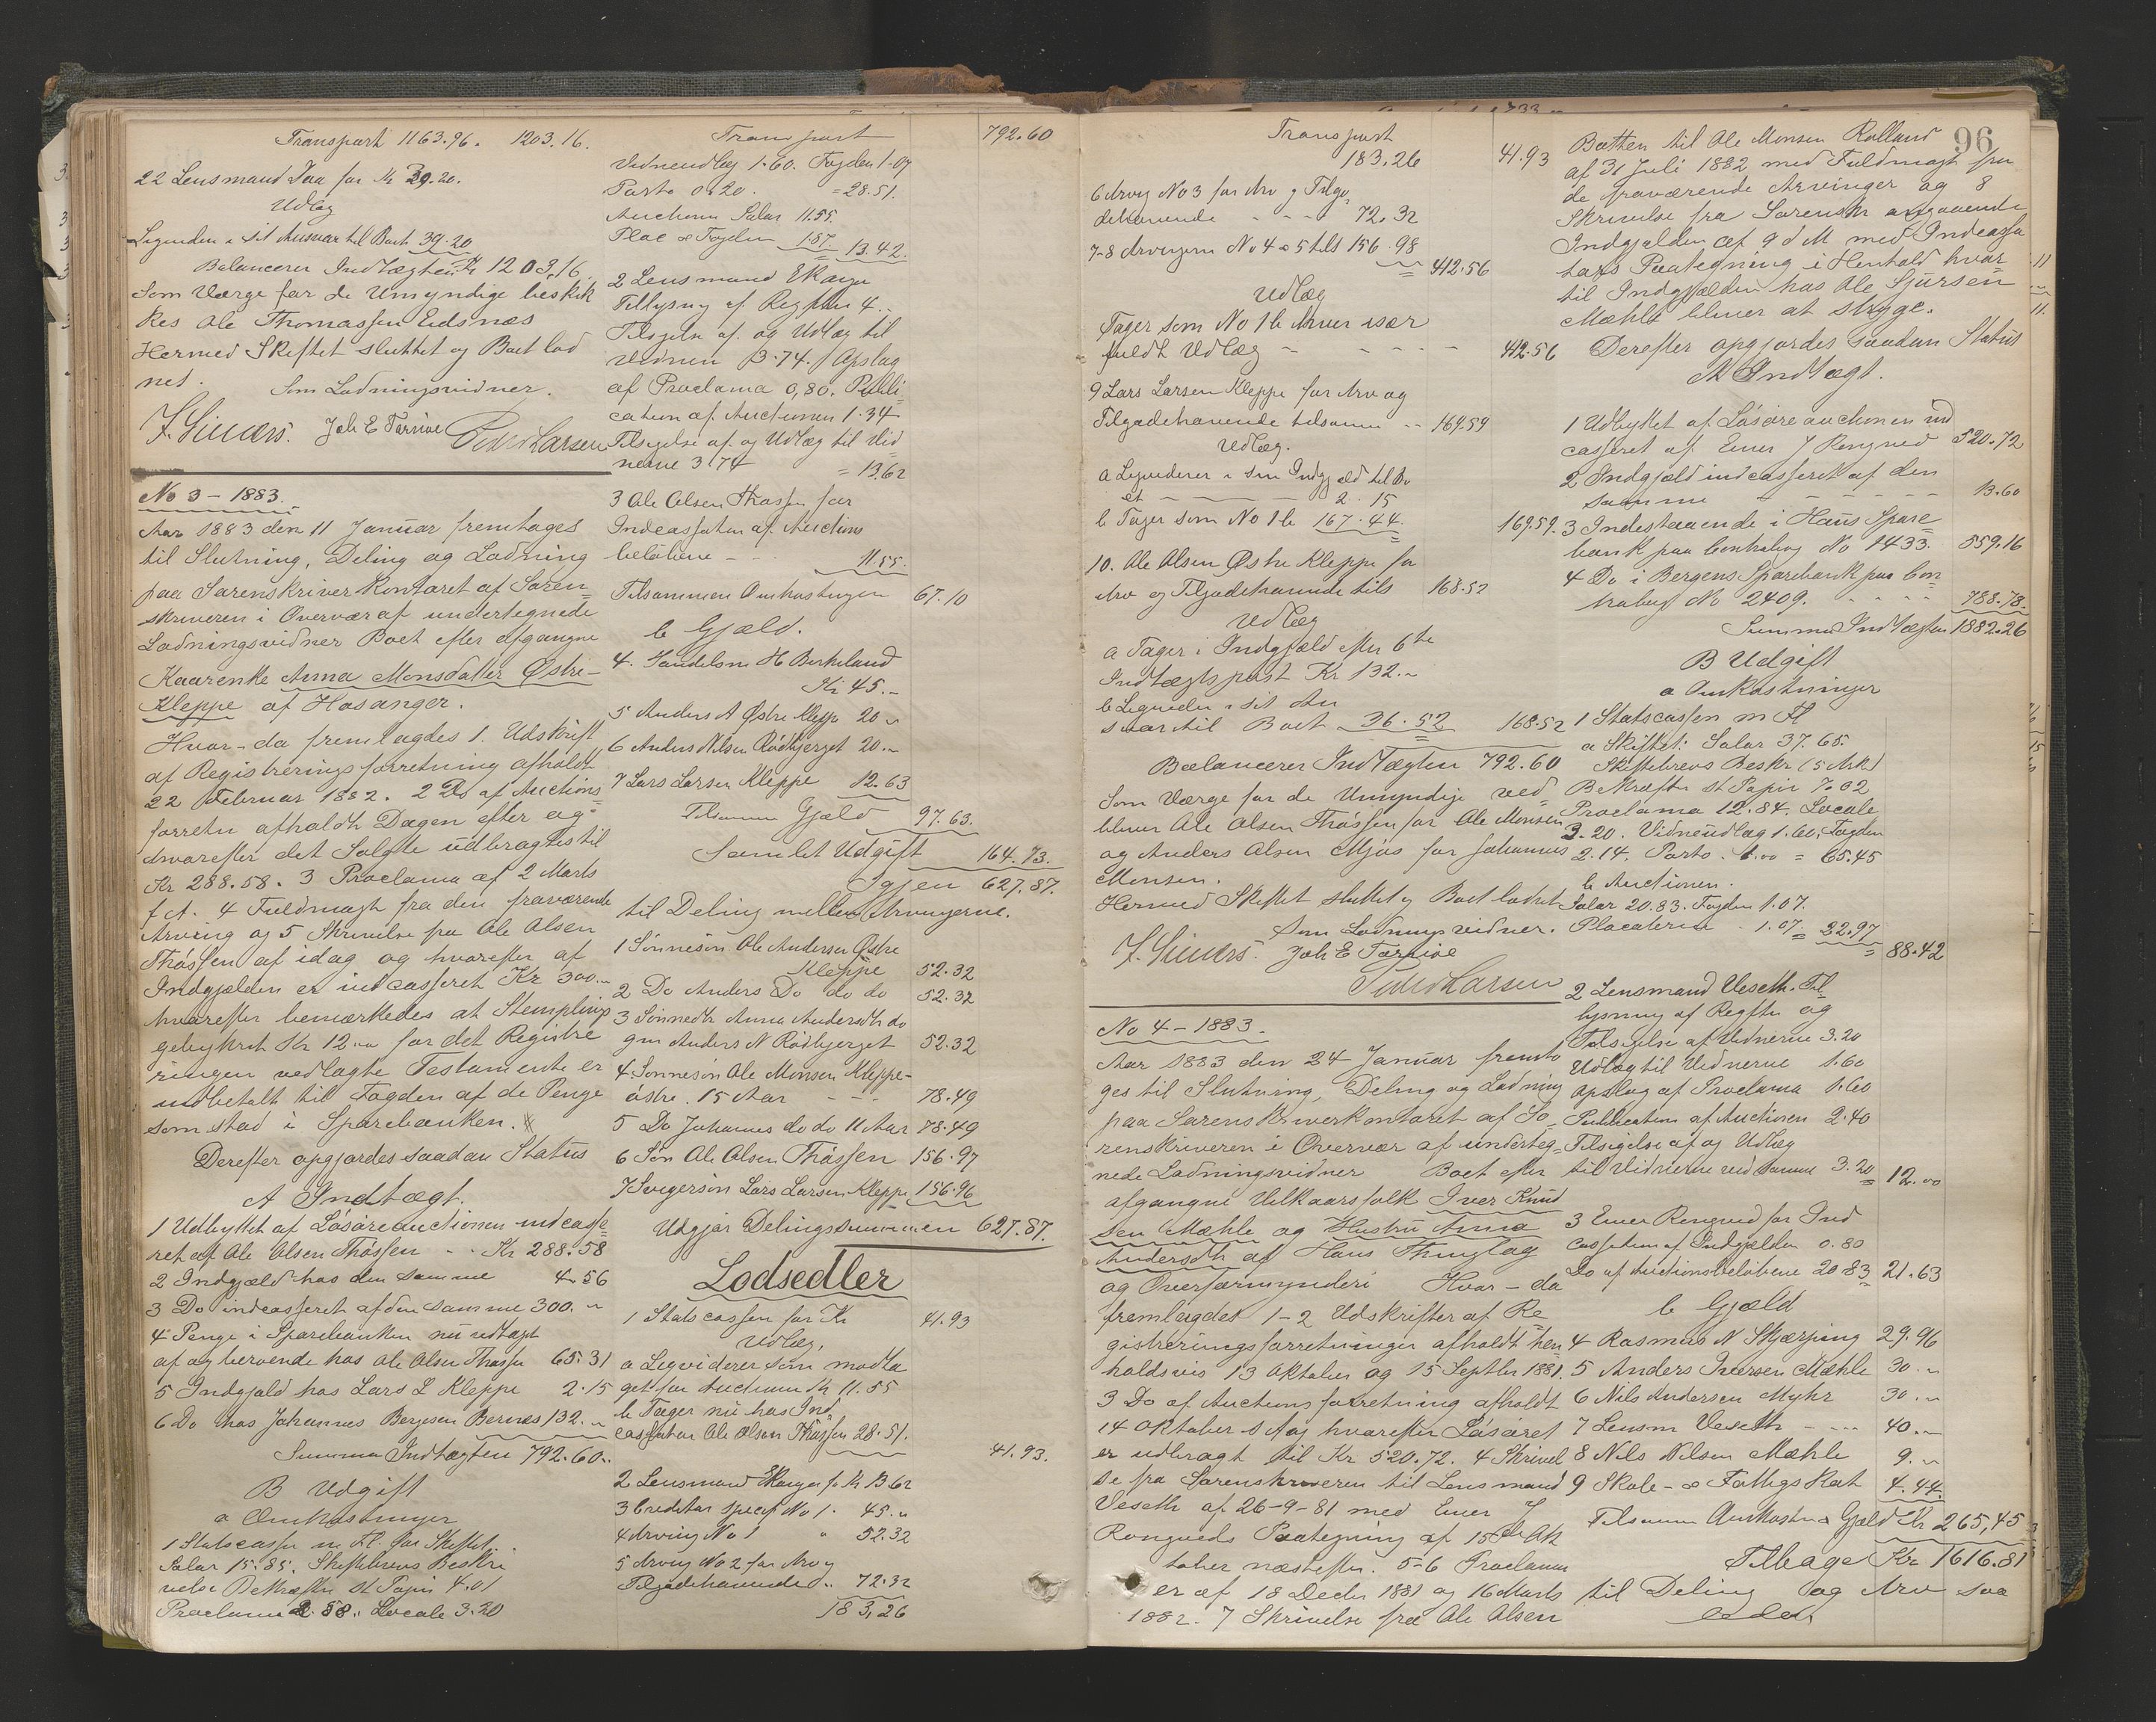 Transport 1163.96. 1203.16.
22 Lensmand Daa for Kr 39.20.
Udlæg
Ligvideres i sit Ansvar til Boet 39.20
Balancerer Indtægten Kr 1203.16.
Som Værge for de Umyndige beskik
kes Ole Thomassen Eidsnes
Hermed Skiftet sluttet og Boet lod
net.
Som Lodningsvidner.
Joh E Peder Larsen
No 3 - 1883.
Aar 1883 den 11 Januar fremtages
til Slutning, Deling og Lodning
paa Sorenskriverkontoret af Soren=
skriveren i Overvær af undertegnede
Lodningsvidner Boet efter afgangne
Kaarenke Anna Monsdatter Østre-
Kleppe af Hosanger.
Hvor-da fremlagdes 1. Udskrift
af Registreringsforretning afholdt
22 Februar 1882. 2 Do af Auctions=
forretn afholdt Dagen efter og
hvorefter det Solgte udbragtes til
Kr 288.58. 3 Proclama af 2 Marts
f A. 4 Fuldmagt fra den fraværende
Arving og 5 Skrivelse fra Ole Olsen
Thøssen af idag og hvorefter af
Indgjælden er indcasseret Kr 300.-
hvorefter bemærkedes at Stemplings
gebyhret Kr 12.- for det Registre
ringen vedlagte Testamente er
udbetalt til Fogden af de Penge
som stod i Sparebanken.
Derefter opgjordes saadan Status
A Indtægt.
1 Udbyttet af Løsøreauctionen indcasse
ret af Ole Olsen Thøssen - . Kr 288.58
2 Indgjæld hos den samme 4.56
3 Do indcasseret af den samme 300. "
4 Penge i Sparebanken nu udtagt
af og beroende hos Ole Olsen Thøssen 65.31
5 Indgjæld hos Lars L Kleppe 2.15
6 Do hos Johannes Børgesen Bernes 132. "
Summa Indtægten 792.60.
B Udgift
a Omkostninger
1 Statscassen m Fl. for Skiftet.
Salar 15.85. Skiftebrevs Beskri
velse Bekræft St Papir 4.01
Proclama 2.58. Locale 3.20
Transport 792.60
Vidneudlæg 1.60. Fogden 1.07
Porto 0.20. = 28.51.
Auctionen Salar 11.55
Plac & Fogden 1.87 = 13.42.
2 Lensmand Skauge
Tillysning af Regstr 4..
Tilsigelse af og Udlæg til
Vidnerne 3.74. Opslag
af Proclama 0,80. Publi=
cation af Auctionen 1.34
Tilsigelse af og Udlæg til Vid
nerne 3.74 = 13.62
3 Ole Olsen Thøssen for
Indcassation af Auctions
beløbene - 11.55.
Tilsammen Omkostningen 67.10
b Gjæld.
4. Handelsm H Birkeland
Kr 45.-
5 Anders A Østre Kleppe 20 "
6 Anders Nilsen Rødbjerget 20. "
7 Lars Larsen Kleppe 12.63
Tilsammen Gjæld 97.63.
Samlet Udgift 164.73.
Igjen 627.87.
til Deling mellem Arvingerne.
1 Sønnesøn Ole Andersen Østre
Kleppe 52.32
2 Do Anders Do do do 52.32
3 Sønnedtr Anna Andersdtr do
gm Anders N Rødbjerget 52.32
4 Sønnesøn Ole Monsen Kleppe-
østre. 15 Aar - - 78.49
5 Do Johannes do do 11 Aar 78.49
6 Søn Ole Olsen Thøssen 156.97
7 Svigersøn Lars Larsen Kleppe 156.96
Udgjør Delingssummen 627.87.
Lodsedler
1 Statscassen for Kr 41.93
Udlæg.
a Ligviderer som modta
get for Auctionen Kr 11.55
b Tager nu hos Ind
cassator Ole Olsen Thøssen 28.51.
41.93.
2 Lensmand Skauge for Kr 13 62
3 Creditor specif No 1. 45. "
4 Arving No 1 " 52.32
5 Arving No 2 for Arv og
Tilgodehavende.. 72.32
183,26
Transport
183.26 41.93
6 Arving No 3 for Arv og Tilgo
dehavende - - - 72.32
7-8 Arvingerne No 4 & 5 tils 156.98
412.56
Udlæg
Tager som No 1 b hver især
fuldt Udlæg - - - - - 412.56
9 Lars Larsen Kleppe for Arv og
Tilgodehavende tilsammen -- 169.59
Udlæg.
a Ligviderer i sin Indgjæld til Bo
et - - - - 2.15
b Tager som No 1 b 167.44.
169.59.
10. Ole Olsen Østre Kleppe for
Arv og Tilgodehavende tils 168.52
Udlæg
a Tager i Indgjæld efter 6te
Indtægtspost Kr 132.-
b Ligvideres i sit An
svar til Boet 36.52 168.52
Balancerer Indtægten 792.60
Som Værge for de Umyndige ved=
bliver Ole Olsen Thøssen for Ole Monsen
og Anders Olsen Mjøs for Johannes
Monsen.
Hermed Skiftet sluttet og Boet lodnet
Som Lodningsvidner.
Joh E
Peder Larsen
No 4 - 1883.
Aar 1883 den 24 Januar fremta
ges til Slutning, Deling og Lodning
paa Sorenskriverkontoret af So=
renskriveren i Overvær af underteg=
nede Lodningsvidner Boet efter
afgangne Velkaarsfolk Iver Knud
sen Mæhle og Hustru Anna
Andersdtr af Haus Thinglag
og Overformynderi Hvor-da
fremlagdes 1-2 Udskrifter af Re
gistreringsforretninger afholdt hen
holdsvis 13 Oktober og 15 Septbr 1881.
3 Do af Auctionsforretning afholdt
14 Oktober s A og hvorefter Løsøret
er udbragt til Kr 520.72. 4 Skrivel
se fra Sorenskriveren til Lensmand
Veseth af 26-9-81 med Emer J
Rongveds Paategning af 15de Ok
tober næstefter. 5-6 Proclama
er af 18 Decbr 1881 og 16 Marts
1882. 7 Skrivelse fra Ole Olsen
96
Botten til Ole Monsen Rolland
af 31 Juli 1882 med Fuldmagt fra
de fraværende Arvinger og 8
Skrivelse fra Sorenskr angaaende
Indgjælden af 9 d M med Indcassa
tors Paategning i Henhold hvor
til Indgjælden hos Ole Sjursen
Mæhle bliver at stryge.
Derefter opgjordes saadan Status
A Indtægt.
1 Udbyttet af Løsøreauctionen ind
casseret af Emer J Rongved 520.72
2 Indgjæld indcasseret af den
samme - - - - 13.60
3 Indestaaende i Haus Spare
bank paa Contrabog No 1433. 559.16
4 Do i Bergens Sparebank paa Con
trabog No 2409. - - - 788.78.
Summa Indtægten 1882.26
B Udgift
a Omkostninger
1 Statscassen m Fl
a Skiftet: Salar 37.65.
Skiftebrevs Beskr (5 Ark)
Bekræft St Papir 7.02
Proclama 12.84. Locale
3.20. Vidneudlæg 1.60. Fogden
2.14. Porto. 1.00 = 65.45
b Auctionen.
Salar 20.83. Fogden 1.07.
Placaterne . 1.07 = 22.97
= 88.42
2 Lensmand Veseth. Til
lysning af Regstr og
Tilsigelse af Vidnerne 3.20
Udlæg til Vidnerne 1.60
Opslag af Proclama 1.60
Publication af Auctionen 2.40
Tilsigelse af og Udlæg
til Vidnerne ved samme 3.20 = 12.00
3 Emer Rongved for Ind
cassation af Indgjælden 0.80
Do af Auctionsbeløbene 20.83 = 21.63
b Gjæld
4 Rasmus N Skjærping 29.96
5 Anders Iversen Mæhle 30. "
6 Nils Andersen Myhr 30. "
7 Lensm Veseth - - - 40. "
8 Nils Nilsen Mæhle 9. "
9 Skole- & Fattigskat 4.44.
Tilsammen Omkostn & Gjæld Kr 265,45
Tilbage Kr 1616.81
til Deling og Arv saa
ledes